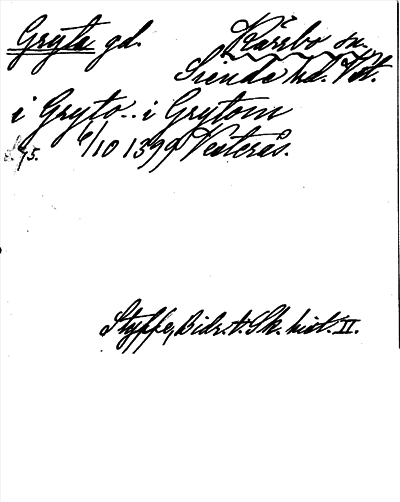 Gryta gd. Kärrbo sn.
Sienda hd. Vstm.
i Gryto.. i Grytom
6/10 1399 Vesterås.
Styffe, Bidr. t. Sk. hist. II.